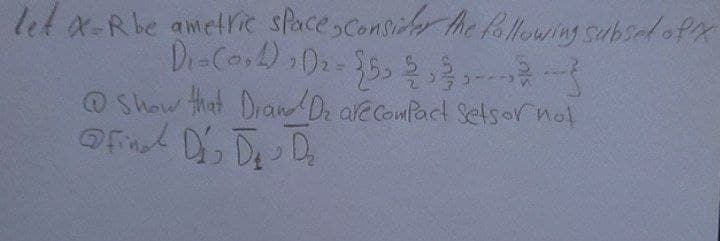 let X=R be ametric space, Consider the following subset of X
D₁=(0,1), D₂= {5, 5/2, 5/3, ---, 5/n ---}
① Show that D₁ and D₂ are compact sets or not
② Find D₁', D̅₁, D̅₂